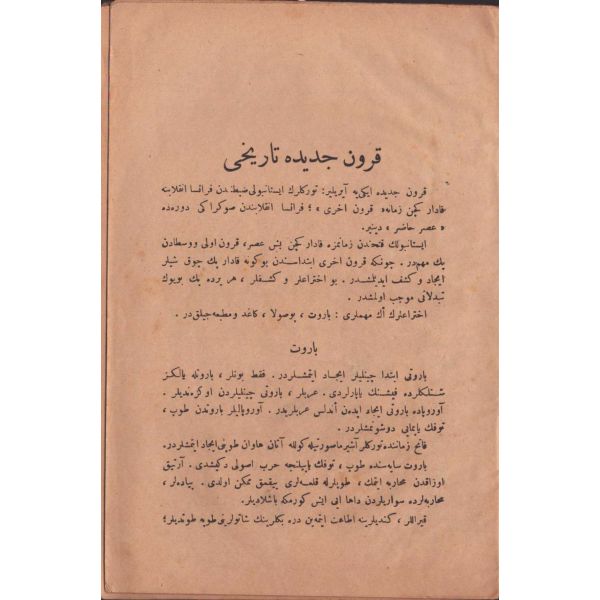 قرون جدیده تاریخی
قرون جدیده ایكی‌یه آیریلیر: توركلرك ایستانبولی ضبطندن فرانسا انقلابنه
قادار كچن زمانه « قرون اخری » ؛ فرانسا انقلابندن صوكرا كی دوره‌ده
« عصر حاضر » دینیر.
ایستانبولك فتحندن زمانمزه قادار كچن بش عصر، قرون اولی ووسطادن
پك مهمدر . چونكه قرون اخری ابتداسندن بوكونه قادار پك چوق شیلر
ایجاد و كشف ایدیلمشدر . بو اختراعلر و كشفلر ، هر یرده پك بویوك
تبدلاتی موجب اولمشدر .
اختراعلرك اك مهملری : باروت ، پوصولا ، كاغد ومطبعه‌جیلق‌در .
باروت
باروتی ابتدا چینلیلر ایجاد ایتمشلردر . فقط بونلر ، باروتله یالكز
شنلكلرده فیشنك یاپارلردی . عربلر ، باروتی چینلیلردن اوكرندیلر .
آوروپاده باروتی ایجاد ایده‌ن آندلس عربلریدر . آوروپالیلر باروتدن طوپ ،
توفك یاپمایی دوشونمشلردر .
فاتح زماننده توركلر آشیرماصورتیله كولله آتان هاوان طوپنی ایجاد ایتمشلردر.
باروت سایه‌سنده طوپ ، توفك یاپیلنجه حرب اصولی دكیشدی . آرتیق
اوزاقدن محاربه ایتمك ، طوپلرله قلعه‌لری ییقمق ممكن اولدی . پیاده‌لر ،
محاربه‌لرده سواریلردن داها ایی ایش كورمكه باشلادیلر.
قیراللر ، كندیلرینه اطاعت ایتمه‌ین دره بكلرینك شاتولرینی طوپه طوتدیلر؛